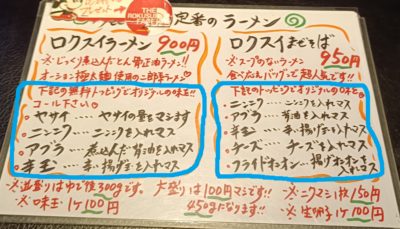 THE
ROKUSUI
定番の ラーメン
ロクスイラーメン 900円
※じっくり煮込んだとん骨正油ラーメン!!
オーション極太麺使用の二郎系ラーメン
下記の無料トッピングでオリジナルの味を!!
コール下さい
・ヤサイ … ヤサイの量をマシます
・ニンニク … ニンニクを入れマス
・アブラ … 煮込んだ背油を入れマス
・辛玉 … 辛い揚げ玉を入れマス
ロクスイまぜそば
950円
※スープのないラーメン
食べ応えバツグンで超人気です!!
下記のトッピングでオリジナルの味を
・ニンニク … ニンニクを入れマス
・アブラ … 背油を入れマス
・辛玉 … 辛い揚げ玉を入れマス
・チーズ … チーズを入れマス
・フライドオニオン … 揚げオニオンを入れマス
※並盛りはゆで後300gです。 大盛りは100円マシです!!
450gになります!!
※味玉 1ケ100円
※ニクマシ1枚150円
※生卵1ケ100円